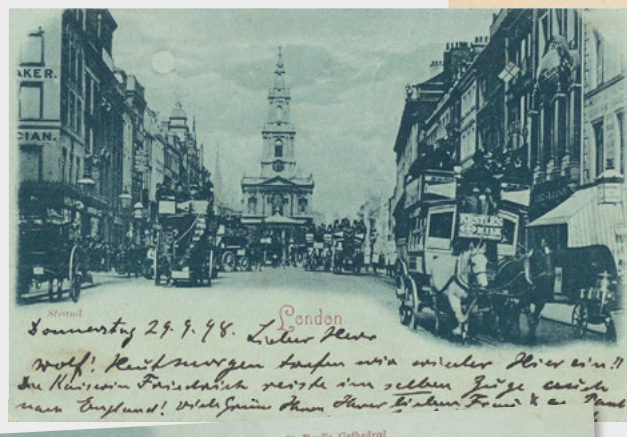 AKER.
CIAN.
NESTLE'S
MILK
Strand
London
Donnerstag 29.9.98. Lieber Herr
Wolf! Heut morgen trafen wir wieder Hier ein!!
Die Kaiserin Friedrich reiste im selben Zuge auch
nach England! Viele Grüsse Ihnen Ihrer lieben Frau &
Cathedral